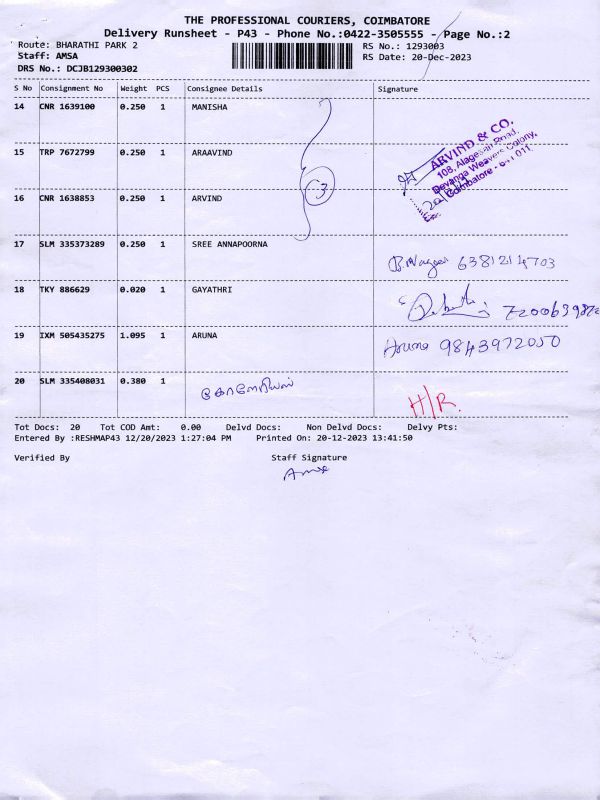 THE PROFESSIONAL COURIERS, COIMBATORE
Delivery Runsheet - P43 - Phone No.:0422-3505555 - Page No.:2
Route: BHARATHI PARK 2 RS No.: 1293003
Staff: AMSA RS Date: 20-Dec-2023
DRS No.: DCJB129300302
S No Consignment No Weight PCS Consignee Details Signature
14 CNR 1639100 0.250 1 MANISHA
15 TRP 7672799 0.250 1 ARAAVIND
ARVIND & CO.
108, Alagesan Road,
Devanga Weavers Colony,
Coimbatore - 641 011.
3
16 CNR 1638853 0.250 1 ARVIND
17 SLM 335373289 0.250 1 SREE ANNAPOORNA
18 TKY 886629 0.020 1 GAYATHRI
19 IXM 505435275 1.095 1 ARUNA
Aruna 9843972050
20 SLM 335408031 0.380 1
H/R.
Tot Docs: 20 Tot COD Amt: 0.00 Delvd Docs: Non Delvd Docs: Delvy Pts:
Entered By :RESHMAP43 12/20/2023 1:27:04 PM Printed On: 20-12-2023 13:41:50
Verified By Staff Signature